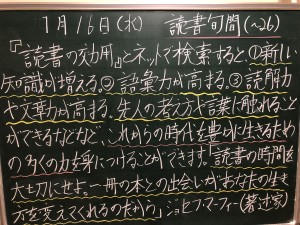 1月16日(水) 読書旬間(〜26)
『読書の効用』とネットで検索すると、①新しい
知識が増える。②語彙力が高まる。③読解力
や文章力が高まる。先人の考え方や言葉に触れること
ができるなどなど、これからの時代を豊かに生きるため
の多くの力を身につけることができます。「読書の時間を
大切にせよ。一冊の本との出会いがあなたの生き
方を変えてくれるのだから」ジョセフマーフィー(著述家)